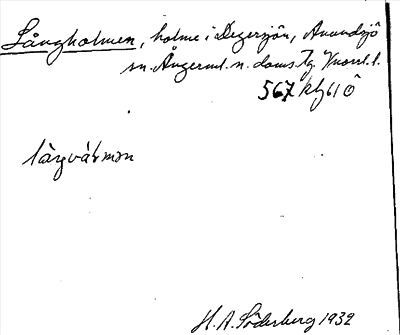 Långholmen, holme i Degersjön, Anundsjö
sn. Ångerml. n. doms. Tg. Vnorrl. l.
567 kf 61 Ö
H. A. Söderberg 1932